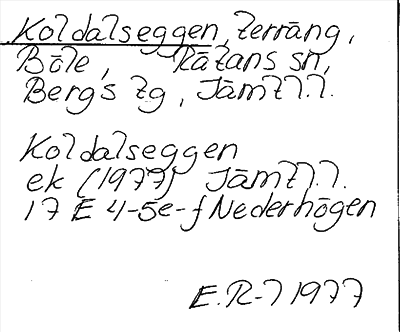 Koldalseggen, terräng,
Böle, Rätans sn,
Bergs tg, Jämtl.l.
Koldalseggen
ek (1977) Jämtl.l.
17 E 4-5e-f Nederhögen
E.R-7 1977